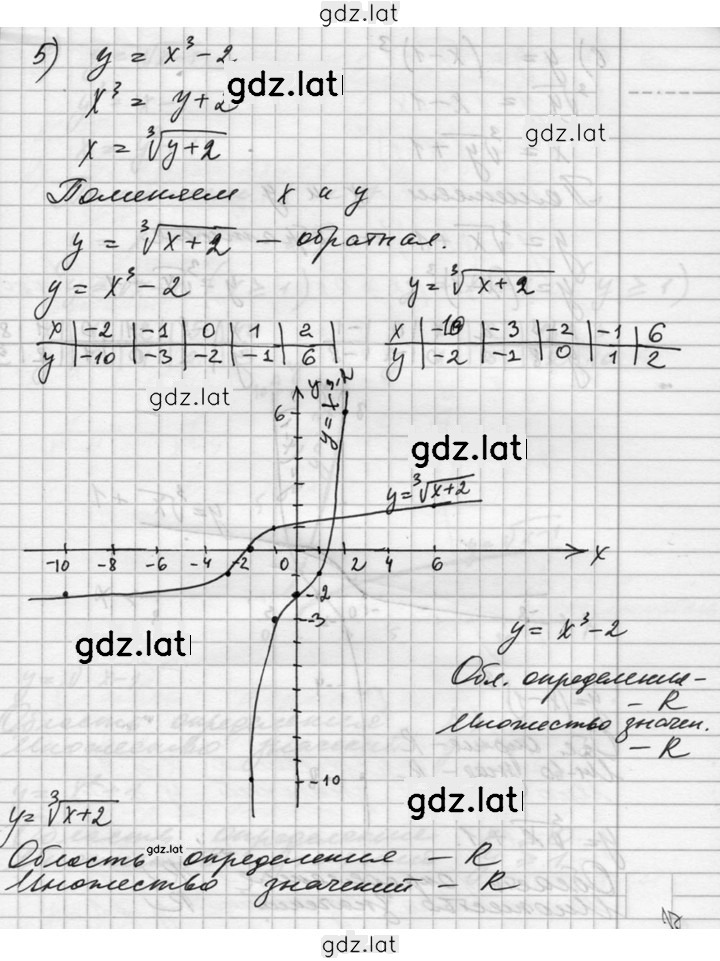 gdz.lat
5) y = x³ - 2.
gdz.lat
x³ = y + 2
gdz.lat
x = ∛(y+2)
Поменяем x и y
y = ∛(x+2) — обратная.
y = x³ - 2 y = ∛(x+2)
x | -2 | -1 | 0 | 1 | 2 |
y | -10 | -3 | -2 | -1 | 6 |
x | -10 | -3 | -2 | -1 | 6
y | -2 | -1 | 0 | 1 | 2
gdz.lat
y
y = x³-2
6
gdz.lat
y = ∛(x+2)
-10 -8 -6 -4 -2 0 2 4 6 x
-2
-3
gdz.lat
y = x³ - 2
Обл. определения -
- R
Множество значен.
- R
-10
gdz.lat
y = ∛(x+2)
gdz.lat
Область определения - R
Множество значений - R
gdz.lat